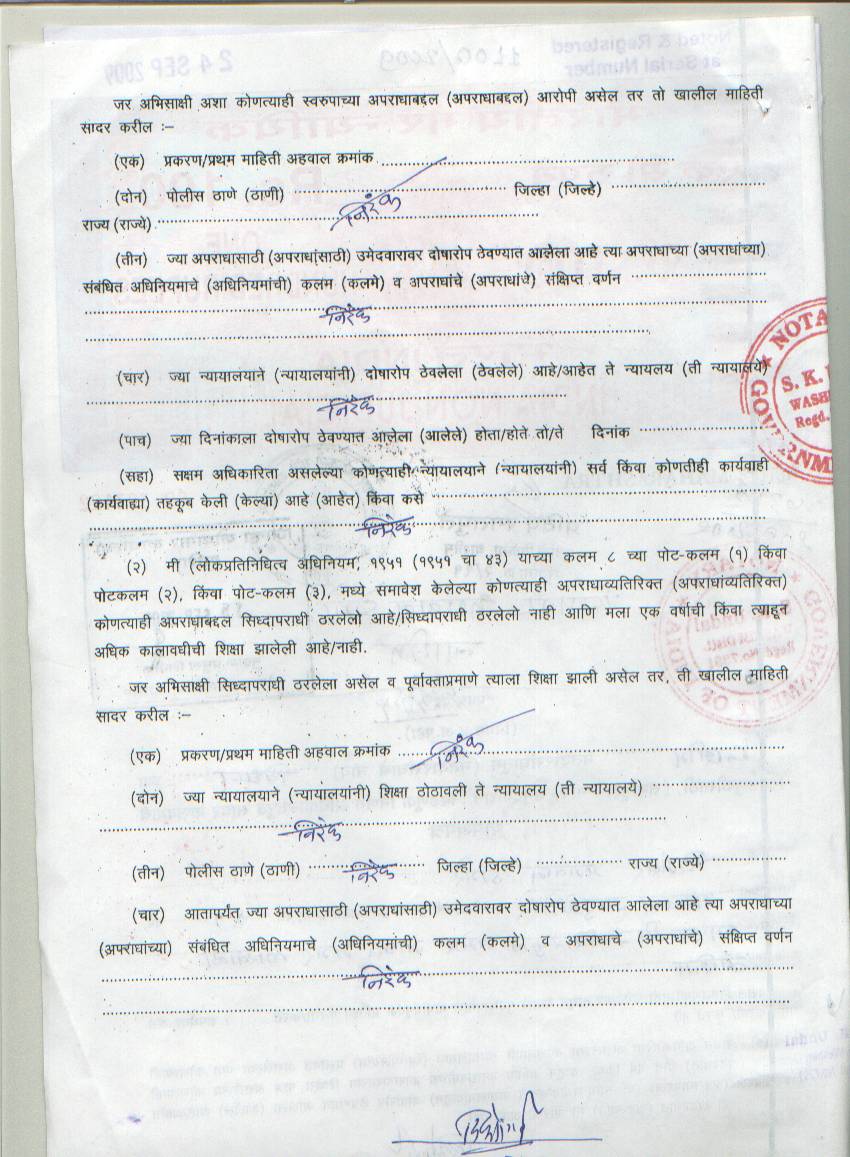 24 SEP 2009
1100/2009
Noted & Registered
at Serial Number
जर अभिसाक्षी अशा कोणत्याही स्वरुपाच्या अपराधाबद्दल (अपराधाबद्दल) आरोपी असेल तर तो खालील माहिती
सादर करील :–
(एक) प्रकरण/प्रथम माहिती अहवाल क्रमांक
(दोन) पोलीस ठाणे (ठाणी) जिल्हा (जिल्हे)
निरंक
राज्य (राज्ये)
(तीन) ज्या अपराधासाठी (अपराधांसाठी) उमेदवारावर दोषारोप ठेवण्यात आलेला आहे त्या अपराधाच्या (अपराधांच्या)
संबंधित अधिनियमाचे (अधिनियमांची) कलम (कलमे) व अपराधांचे (अपराधांचे) संक्षिप्त वर्णन
निरंक
(चार) ज्या न्यायालयाने (न्यायालयांनी) दोषारोप ठेवलेला (ठेवलेले) आहे/आहेत ते न्यायलय (ती न्यायालये)
निरंक
(पाच) ज्या दिनांकाला दोषारोप ठेवण्यात आलेला (आलेले) होता/होते तो/ते दिनांक
(सहा) सक्षम अधिकारिता असलेल्या कोणत्याही न्यायालयाने (न्यायालयांनी) सर्व किंवा कोणतीही कार्यवाही
(कार्यवाह्या) तहकूब केली (केल्या) आहे (आहेत) किंवा कसे
निरंक
(२) मी (लोकप्रतिनिधित्व अधिनियम, १९५१ (१९५१ चा ४३) याच्या कलम ८ च्या पोट-कलम (१) किंवा
पोटकलम (२), किंवा पोट-कलम (३), मध्ये समावेश केलेल्या कोणत्याही अपराधाव्यतिरिक्त (अपराधांव्यतिरिक्त)
कोणत्याही अपराधाबद्दल सिध्दापराधी ठरलेलो आहे/सिध्दापराधी ठरलेलो नाही आणि मला एक वर्षाची किंवा त्याहून
अधिक कालावधीची शिक्षा झालेली आहे/नाही.
जर अभिसाक्षी सिध्दापराधी ठरलेला असेल व पूर्वाक्ताप्रमाणे त्याला शिक्षा झाली असेल तर, ती खालील माहिती
सादर करील :–
(एक) प्रकरण/प्रथम माहिती अहवाल क्रमांक निरंक
(दोन) ज्या न्यायालयाने (न्यायालयांनी) शिक्षा ठोठावली ते न्यायालय (ती न्यायालये)
निरंक
(तीन) पोलीस ठाणे (ठाणी) निरंक जिल्हा (जिल्हे) राज्य (राज्ये)
(चार) आतापर्यंत ज्या अपराधासाठी (अपराधांसाठी) उमेदवारावर दोषारोप ठेवण्यात आलेला आहे त्या अपराधाच्या
(अपराधांच्या) संबंधित अधिनियमाचे (अधिनियमांची) कलम (कलमे) व अपराधाचे (अपराधांचे) संक्षिप्त वर्णन
निरंक
NOTA
S. K.
WASH
Regd.
GOVERNM